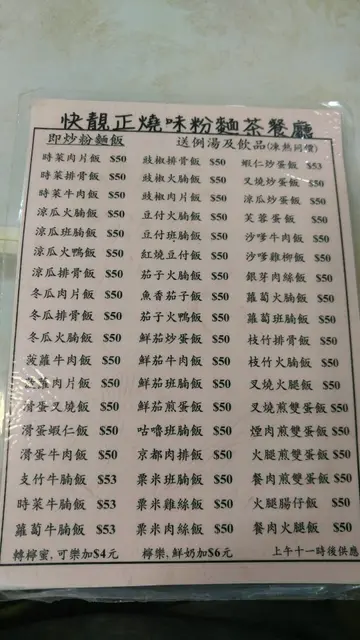 快靚正燒味粉麵茶餐廳
即炒粉麵飯 送例湯及飲品(凍熱同價)
時菜肉片飯 $50 豉椒排骨飯 $50 蝦仁炒蛋飯 $53
時菜排骨飯 $50 豉椒火腩飯 $50 叉燒炒蛋飯 $50
時菜牛肉飯 $50 豉椒肉片飯 $50 涼瓜炒蛋飯 $50
涼瓜火腩飯 $50 豆付火腩飯 $50 芙蓉蛋飯 $50
涼瓜班腩飯 $50 豆付班腩飯 $50 沙嗲牛肉飯 $50
涼瓜火鴨飯 $50 紅燒豆付飯 $50 沙嗲雞柳飯 $50
涼瓜排骨飯 $50 茄子火腩飯 $50 銀芽肉絲飯 $50
冬瓜肉片飯 $50 魚香茄子飯 $50 蘿蔔火腩飯 $50
冬瓜排骨飯 $50 茄子火鴨飯 $50 蘿蔔班腩飯 $50
冬瓜火腩飯 $50 鮮茄炒蛋飯 $50 枝竹排骨飯 $50
菠蘿牛肉飯 $50 鮮茄牛肉飯 $50 枝竹火腩飯 $50
菠蘿肉片飯 $50 鮮茄班腩飯 $50 叉燒火腿飯 $50
滑蛋叉燒飯 $50 鮮茄煎蛋飯 $50 叉燒煎雙蛋飯 $50
滑蛋蝦仁飯 $50 咕嚕班腩飯 $50 煙肉煎雙蛋飯 $50
滑蛋牛肉飯 $50 京都肉排飯 $50 火腿煎雙蛋飯 $50
支竹牛腩飯 $53 粟米班腩飯 $50 餐肉煎雙蛋飯 $50
時菜牛腩飯 $53 粟米雞絲飯 $50 火腿腸仔飯 $50
蘿蔔牛腩飯 $53 粟米肉絲飯 $50 餐肉火腿飯 $50
轉檸蜜,可樂加$4元 檸樂,鮮奶加$6元 上午十一時後供應